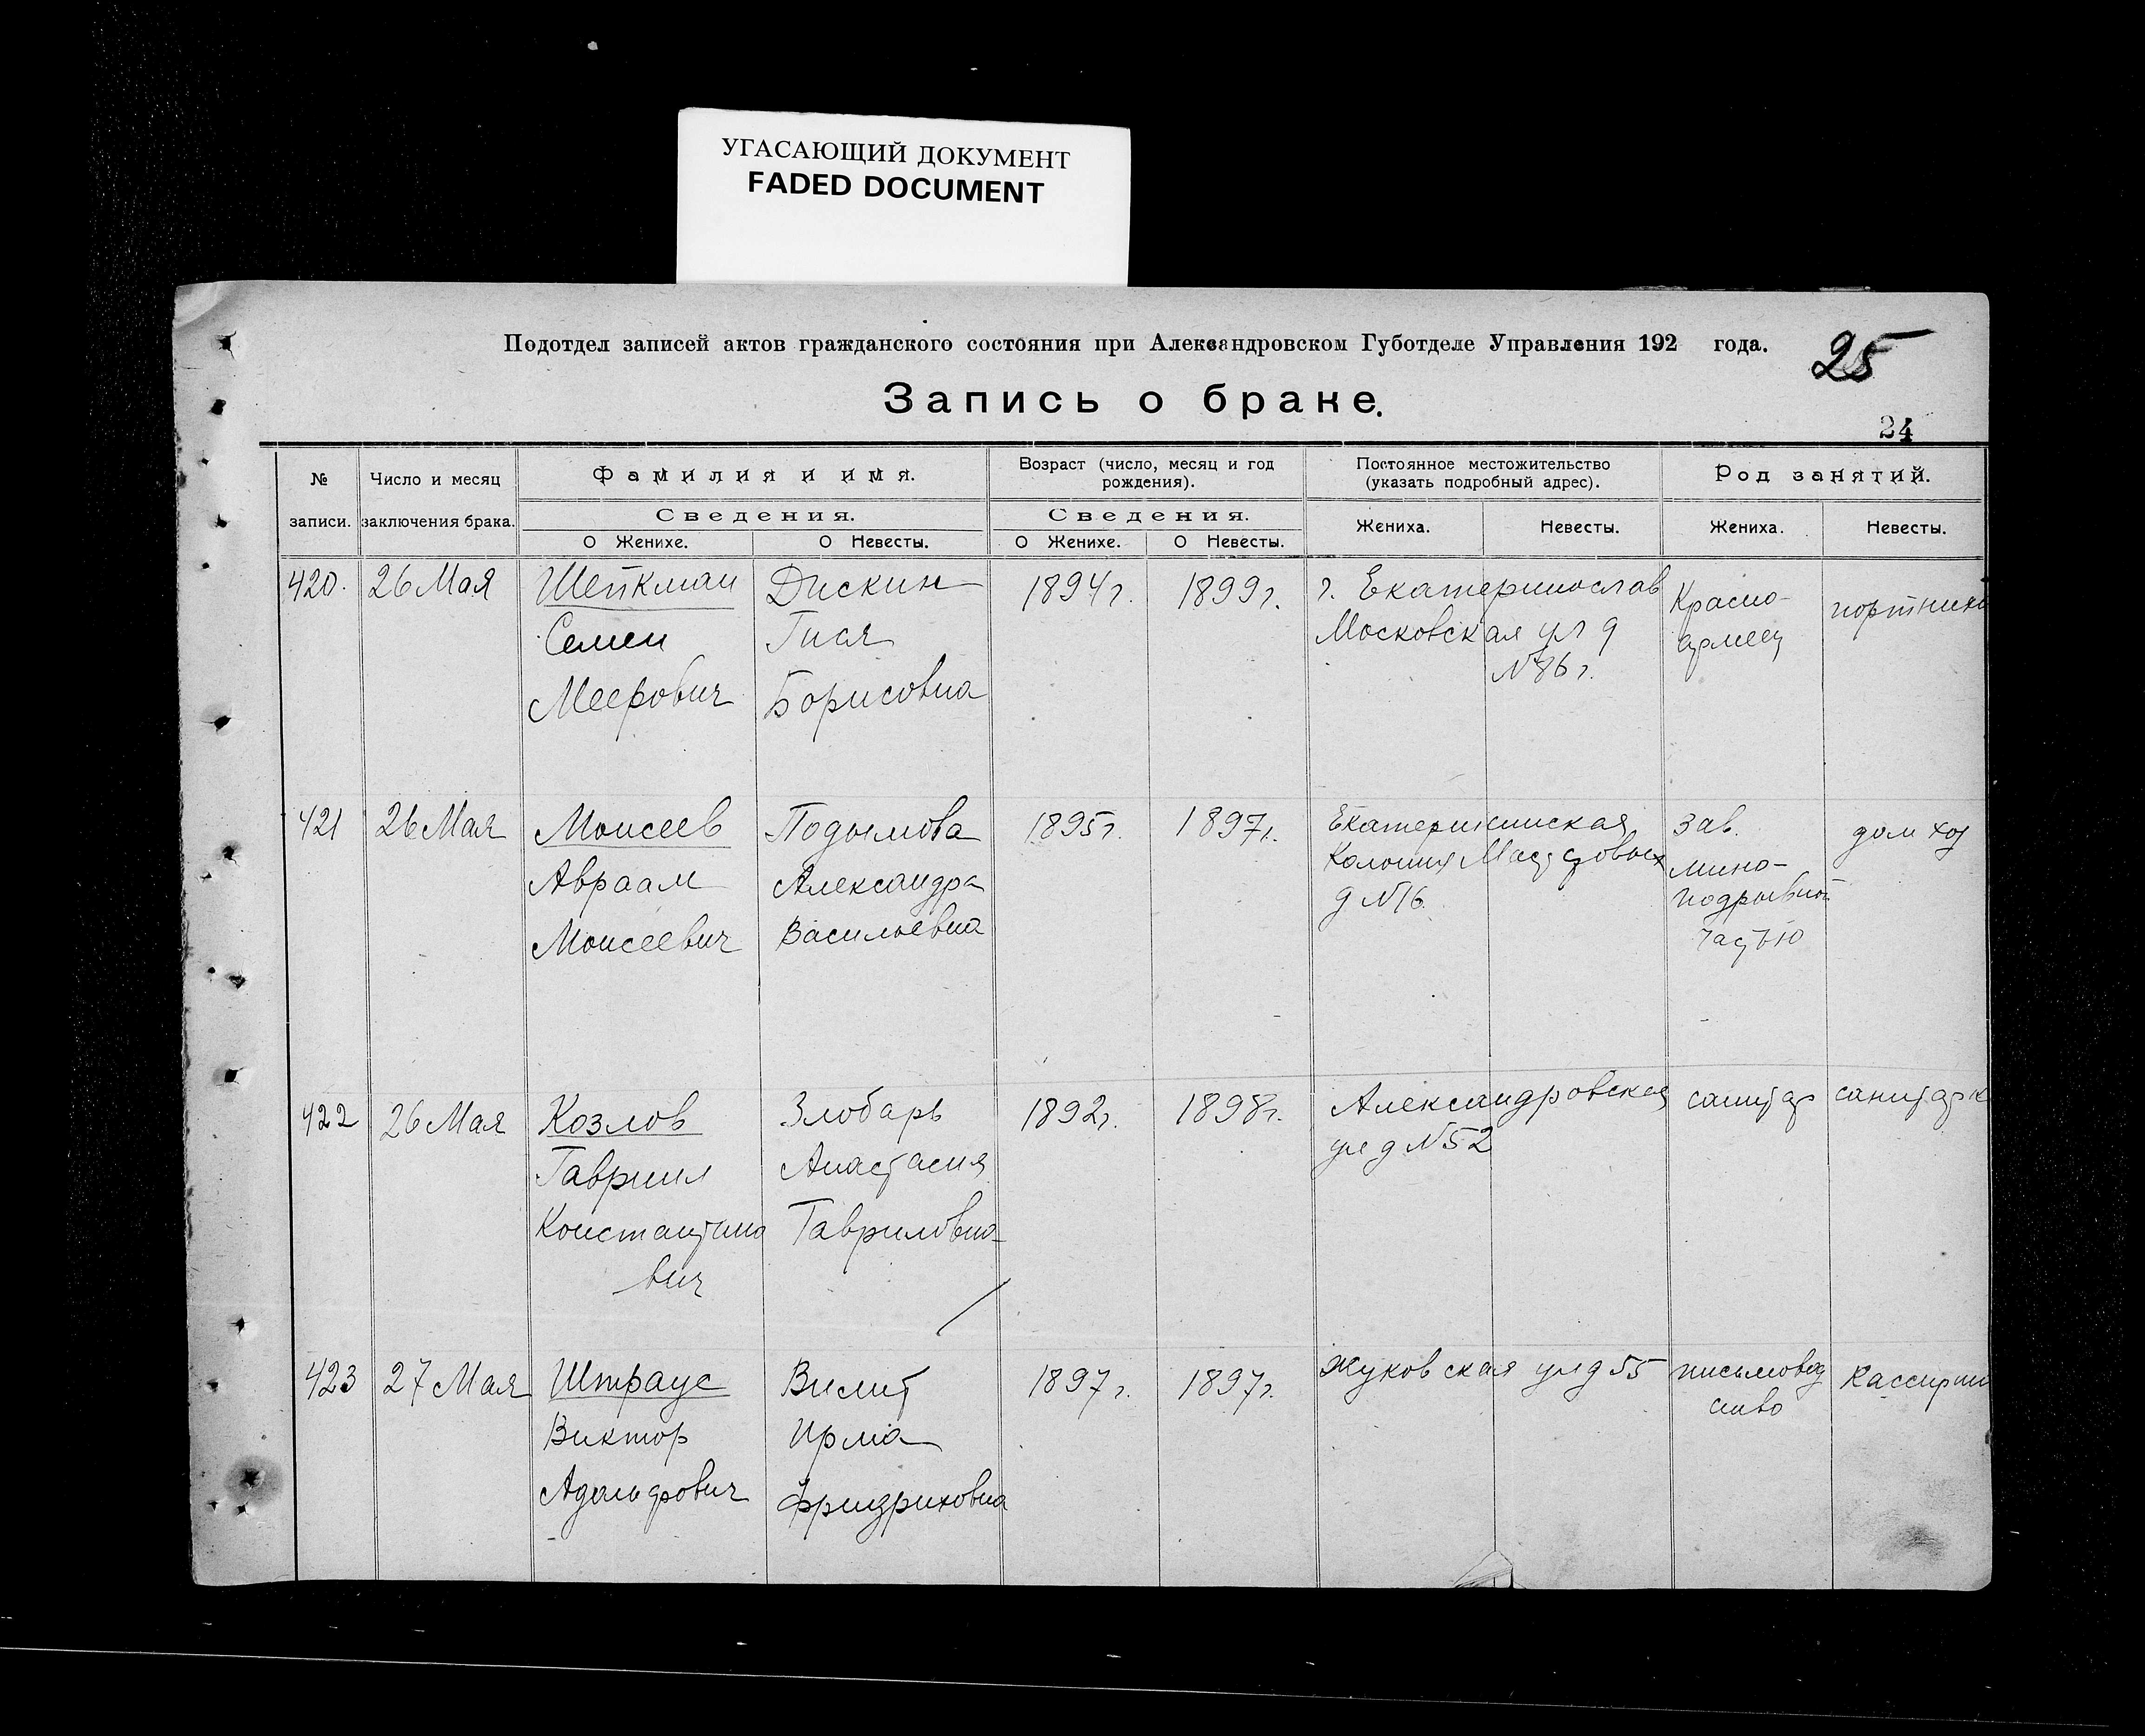 УГАСАЮЩИЙ ДОКУМЕНТ
FADED DOCUMENT
Подотдел записей актов гражданского состояния при Александровском Губотделе Управления 192 года.
25
Запись о браке.
24
№ записи.
Число и месяц заключения брака.
Фамилия и имя.
Сведения.
О Женихе.
О Невесты.
Возраст (число, месяц и год рождения).
Сведения.
О Женихе.
О Невесты.
Постоянное местожительство (указать подробный адрес).
Жениха.
Невесты.
Род занятий.
Жениха.
Невесты.
420.
26 Мая
Шейкман
Семен
Меерович
Дискин
Гися
Борисовна
1894 г.
1899 г.
г. Екатеринослав
Московская ул д
№ 86 г.
Красно-
армеец
421
26 Мая
Моисеев
Авраам
Моисеевич
Подымова
Александра
Васильевна
1895 г.
1897 г.
Екатерининская
Колония
д № 16
Зав.
мино-
подрывной
частью
дом хоз
422
26 Мая
Козлов
Гавриил
Константино
вич
Злобарь
Анастасия
Гавриловна
1892 г.
1898 г.
Александровская
ул д № 52
санитар
санитарк
423
27 Мая
Штраус
Виктор
Адольфович
Вилит
Ирма
Фридриховна
1897 г.
1897 г.
Жуковская ул д 55
письмовод
ство
Кассирш